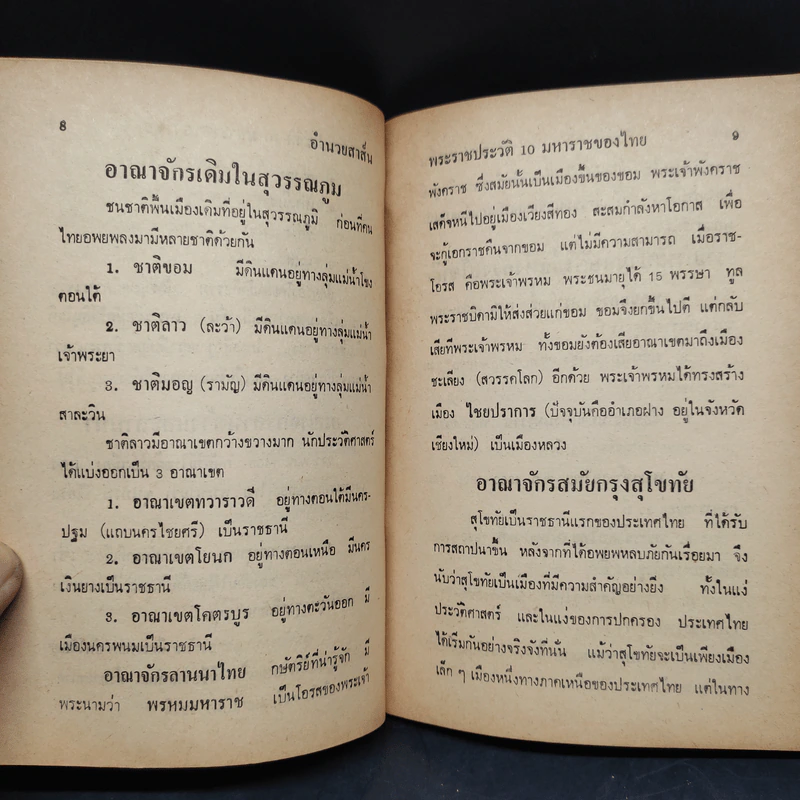 8
อำนวยสาส์น
อาณาจักรเดิมในสุวรรณภูม
ชนชาติพื้นเมืองเดิมที่อยู่ในสุวรรณภูมิ ก่อนที่คน
ไทยอพยพลงมามีหลายชาติด้วยกัน
1. ชาติขอม มีดินแดนอยู่ทางลุ่มแม่น้ำโขง
ตอนใต้
2. ชาติลาว (ละว้า) มีดินแดนอยู่ทางลุ่มแม่น้ำ
เจ้าพระยา
3. ชาติมอญ (รามัญ) มีดินแดนอยู่ทางลุ่มแม่น้ำ
สาละวิน
ชาติลาวมีอาณาเขตกว้างขวางมาก นักประวัติศาสตร์
ได้แบ่งออกเป็น 3 อาณาเขต
1. อาณาเขตทวาราวดี อยู่ทางตอนใต้มีนคร-
ปฐม (แถบนครไชยศรี) เป็นราชธานี
2. อาณาเขตโยนก อยู่ทางตอนเหนือ มีนคร
เงินยางเป็นราชธานี
3. อาณาเขตโคตรบูร อยู่ทางตะวันออก มี
เมืองนครพนมเป็นราชธานี
อาณาจักรลานนาไทย กษัตริย์ที่น่ารู้จัก มี
พระนามว่า พรหมมหาราช เป็นโอรสของพระเจ้า
พระราชประวัติ 10 มหาราชของไทย 9
พังคราช ซึ่งสมัยนั้นเป็นเมืองขึ้นของขอม พระเจ้าพังคราช
เสด็จหนีไปอยู่เมืองเวียงสีทอง สะสมกำลังหาโอกาส เพื่อ
จะกู้เอกราชคืนจากขอม แต่ไม่มีความสามารถ เมื่อราช-
โอรส คือพระเจ้าพรหม พระชนมายุได้ 15 พรรษา ทูล
พระราชบิดามิให้ส่งส่วยแก่ขอม ขอมจึงยกขึ้นไปตี แต่กลับ
เสียทีพระเจ้าพรหม ทั้งขอมยังต้องเสียอาณาเขตมาถึงเมือง
ชะเลียง (สวรรคโลก) อีกด้วย พระเจ้าพรหมได้ทรงสร้าง
เมือง ไชยปราการ (ปัจจุบันคืออำเภอฝาง อยู่ในจังหวัด
เชียงใหม่) เป็นเมืองหลวง
อาณาจักรสมัยกรุงสุโขทัย
สุโขทัยเป็นราชธานีแรกของประเทศไทย ที่ได้รับ
การสถาปนาขึ้น หลังจากที่ได้อพยพหลบภัยกันเรื่อยมา จึง
นับว่าสุโขทัยเป็นเมืองที่มีความสำคัญอย่างยิ่ง ทั้งในแง่
ประวัติศาสตร์ และในแง่ของการปกครอง ประเทศไทย
ได้เริ่มกันอย่างจริงจังที่นั่น แม้ว่าสุโขทัยจะเป็นเพียงเมือง
เล็ก ๆ เมืองหนึ่งทางภาคเหนือของประเทศไทย แต่ในทาง